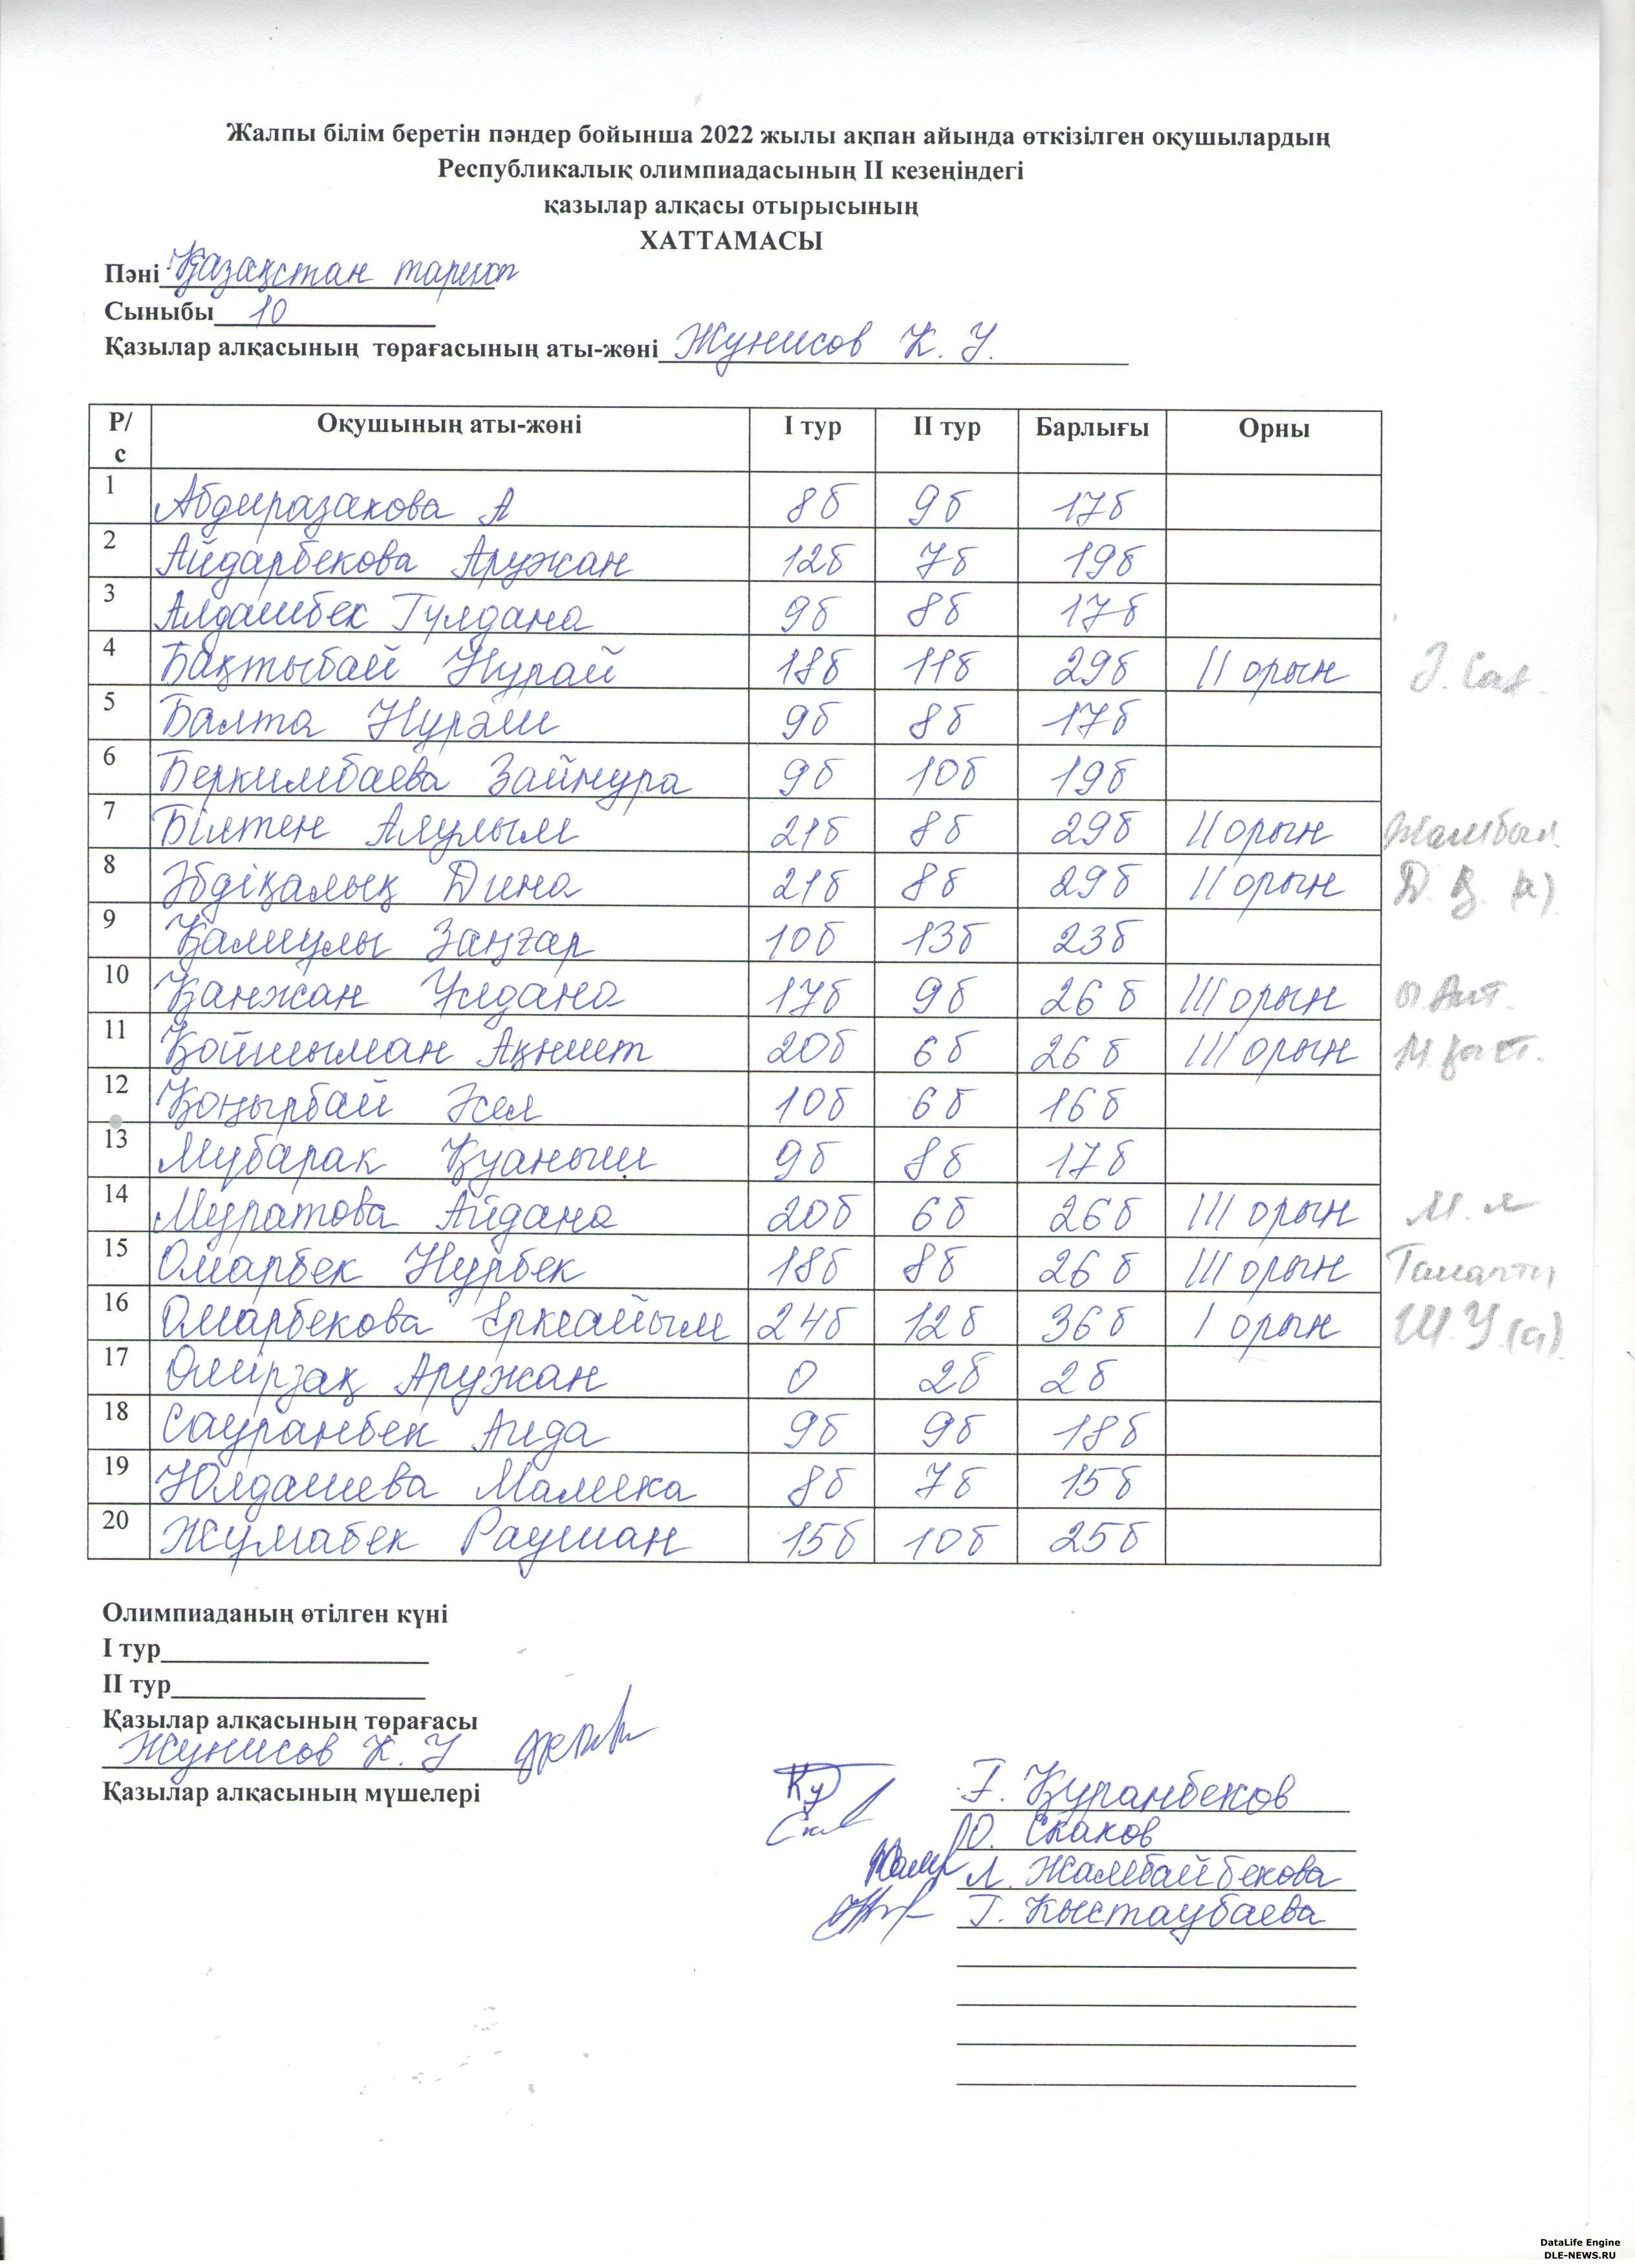 Жалпы білім беретін пәндер бойынша 2022 жылы ақпан айында өткізілген оқушылардың
Республикалық олимпиадасының ІІ кезеңіндегі
қазылар алқасы отырысының
ХАТТАМАСЫ
Пәні Қазақстан тарихы
Сыныбы 10
Қазылар алқасының төрағасының аты-жөні Жунисов К. У.
Р/с Оқушының аты-жөні І тур ІІ тур Барлығы Орны
1 Абдиразакова А 8б 9б 17б
2 Айдарбекова Аружан 12б 7б 19б
3 Алдашбек Гүлдана 9б 8б 17б
4 Бақтыбай Нұрай 18б 11б 29б ІІ орын
5 Балта Нұрәли 9б 8б 17б
6 Беркимбаева Зайнура 9б 10б 19б
7 Білтен Аяулым 21б 8б 29б ІІ орын Жамбыл
8 Әбдіқалық Дина 21б 8б 29б ІІ орын
9 Қалиұлы Заңғар 10б 13б 23б
10 Қанжан Ұлдана 17б 9б 26б ІІІ орын
11 Қойшыман Ақниет 20б 6б 26б ІІІ орын
12 Қоңырбай 10б 6б 16б
13 Мубарак Қуаныш 9б 8б 17б
14 Муратова Айдана 20б 6б 26б ІІІ орын
15 Омарбек Нұрбек 18б 8б 26б ІІІ орын
16 Омарбекова Еркеайым 24б 12б 36б І орын Ш.У.(а)
17 Өмірзақ Аружан 0 2б 2б
18 Сауранбек Аида 9б 9б 18б
19 Юлдашева Малика 8б 7б 15б
20 Жұмабек Раушан 15б 10б 25б
Олимпиаданың өтілген күні
І тур
ІІ тур
Қазылар алқасының төрағасы
Жунисов К. У
Қазылар алқасының мүшелері
Ғ. Құранбеков
Ю. Скаков
Л. Жамбайбекова
Г. Кыстаубаева
DataLife Engine
DLE-NEWS.RU